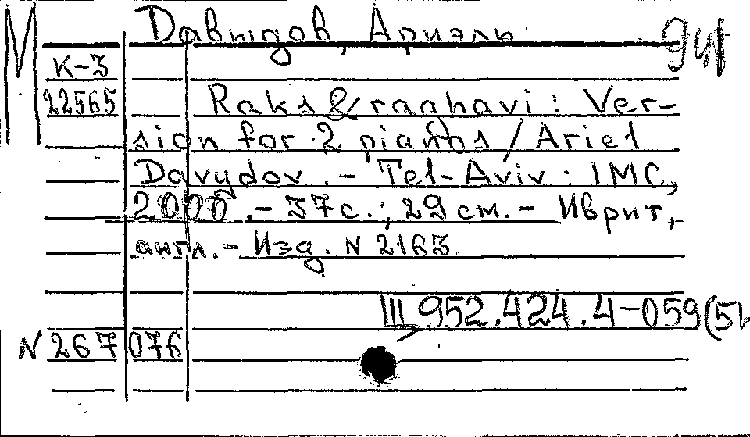 М Давыдов, Ариэль
К-3
22565
Raks & raahavi: Ver-
sion for 2 pianos / Ariel
Davydov. - Tel-Aviv: IMC,
2000. - 37 с.; 29 см. - Иврит,
англ. - Изд. N 2163
Щ952.424.4-059(5
N 267 076